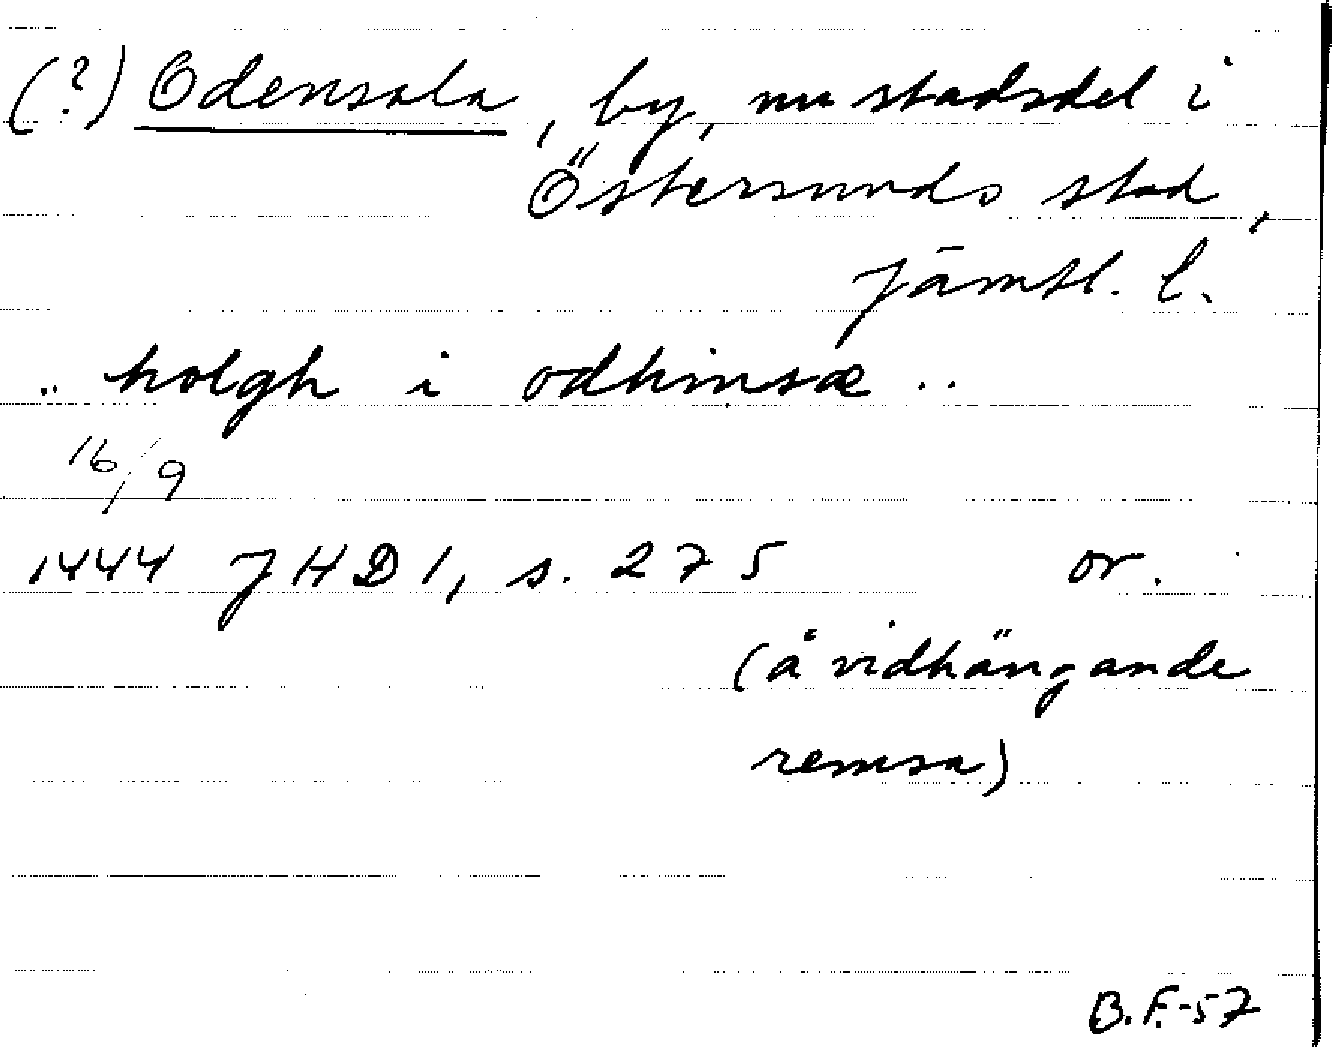 (?) Odensala, by, nu stadsdel i
Östersunds stad,
Jämtl. l.
.. holgh i odhinsæ ..
16/9
1444 JHD 1, s. 275 or.
(å vidhängande
remsa)
B.F.-57